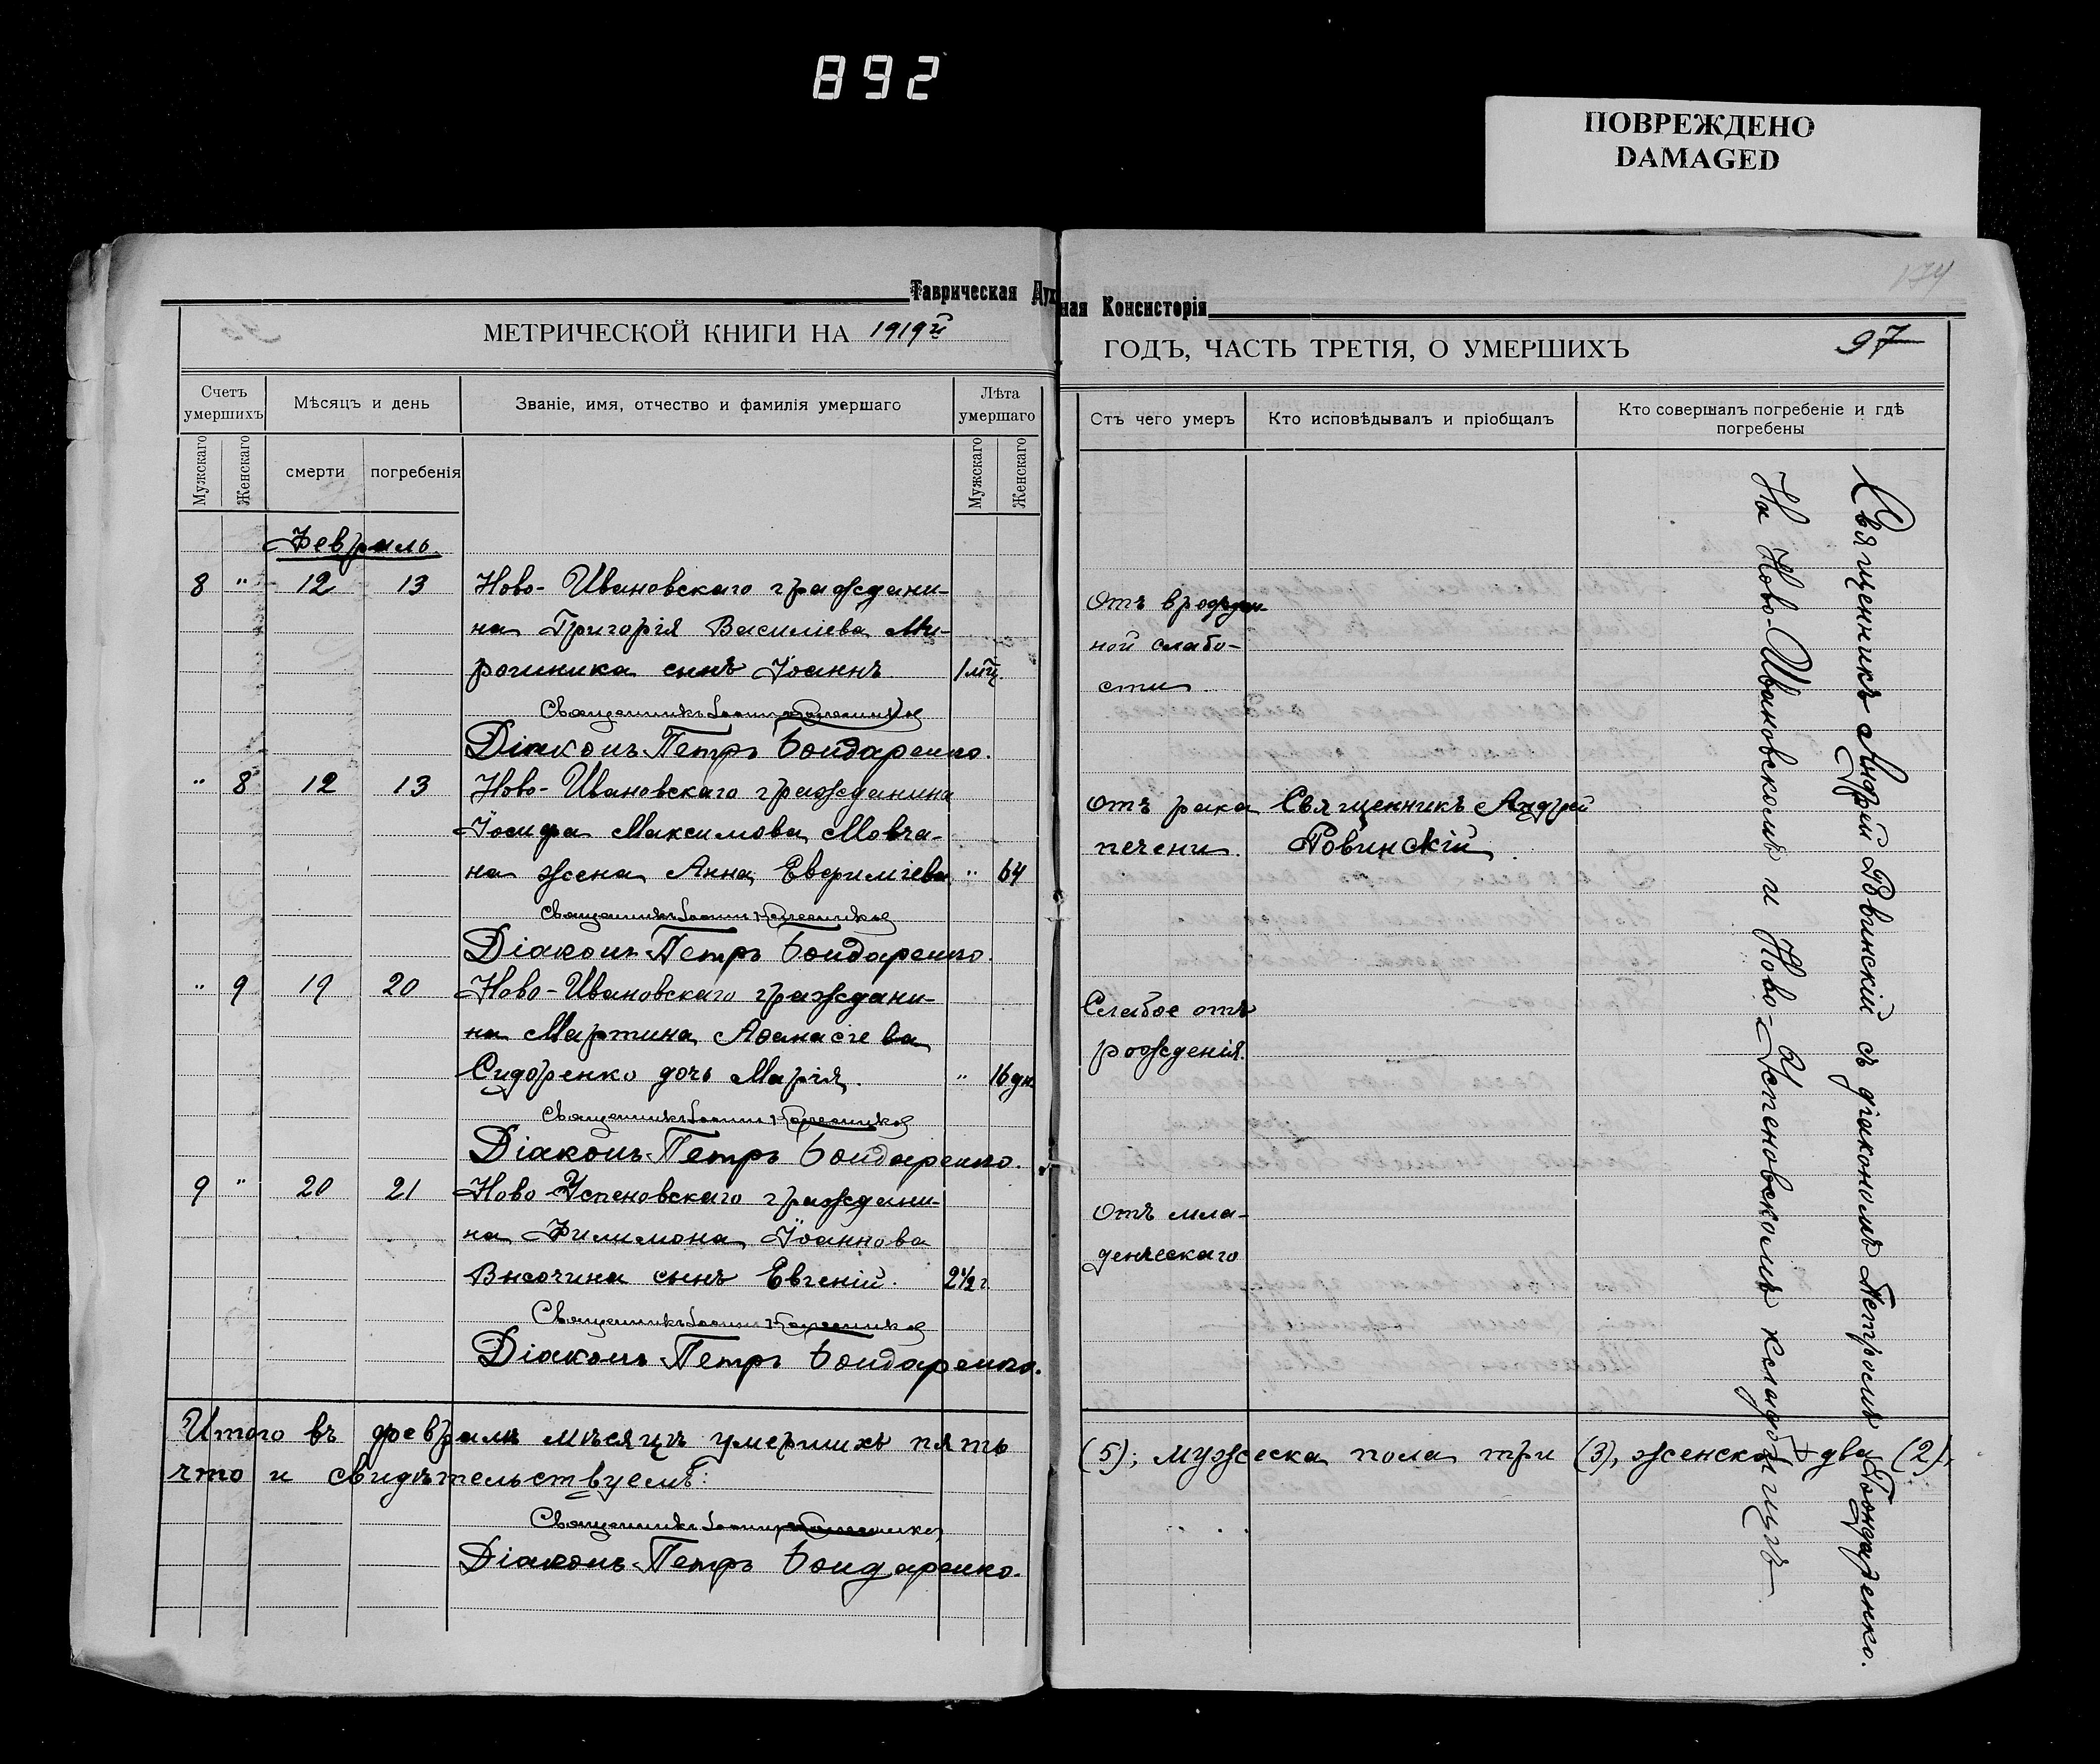 892
ПОВРЕЖДЕНО
DAMAGED
Таврическая Дух
МЕТРИЧЕСКОЙ КНИГИ НА 1919й
Счетъ умершихъ
Мужскаго
Женскаго
Мѣсяцъ и день
смерти
погребенія
Званіе, имя, отчество и фамилія умершаго
Лѣта умершаго
Мужскаго
Женскаго
Февраль.
8 " 12 13 Ново-Ивановскаго граждани-
на Григорія Василіева Ми-
рошника сынъ Іоаннъ 1 мц.
Священникъ Іоаннъ
Діаконъ Петръ Бондаренко.
" 8 12 13 Ново-Ивановскаго гражданина
Іосифа Максимова Мовча-
на жена Анна Евфиміева " 64
Священникъ Іоаннъ
Діаконъ Петръ Бондаренко.
" 9 19 20 Ново-Ивановскаго граждани-
на Мартина Аѳанасіева
Сидоренко дочь Марія. " 16 дн
Священникъ Іоаннъ
Діаконъ Петръ Бондаренко.
9 " 20 21 Ново-Успеновскаго граждани-
на Филимона Іоаннова
Височина сынъ Евгеній. 2½ г.
Священникъ Іоаннъ
Діаконъ Петръ Бондаренко.
Итого въ февралѣ мѣсяцѣ умершихъ пять
что и свидѣтельствуемъ:
Священникъ Іоаннъ
Діаконъ Петръ Бондаренко.
ная Консисторія
174
ГОДЪ, ЧАСТЬ ТРЕТІЯ, О УМЕРШИХЪ
97
Стъ чего умеръ
Кто исповѣдывалъ и пріобщалъ
Кто совершалъ погребеніе и гдѣ
погребены
Отъ врожден-
ной слабо-
сти
отъ рака Священникъ Андрей
печени. Ровинскій.
Слабое отъ
рожденія.
Отъ мла-
денческаго
(5); мужеска пола три (3), женска два (2),
Священникъ Андрей Ровинскій съ діакономъ Петромъ Бондаренко.
На Ново-Ивановскомъ и Ново-Успеновскомъ кладбищѣ